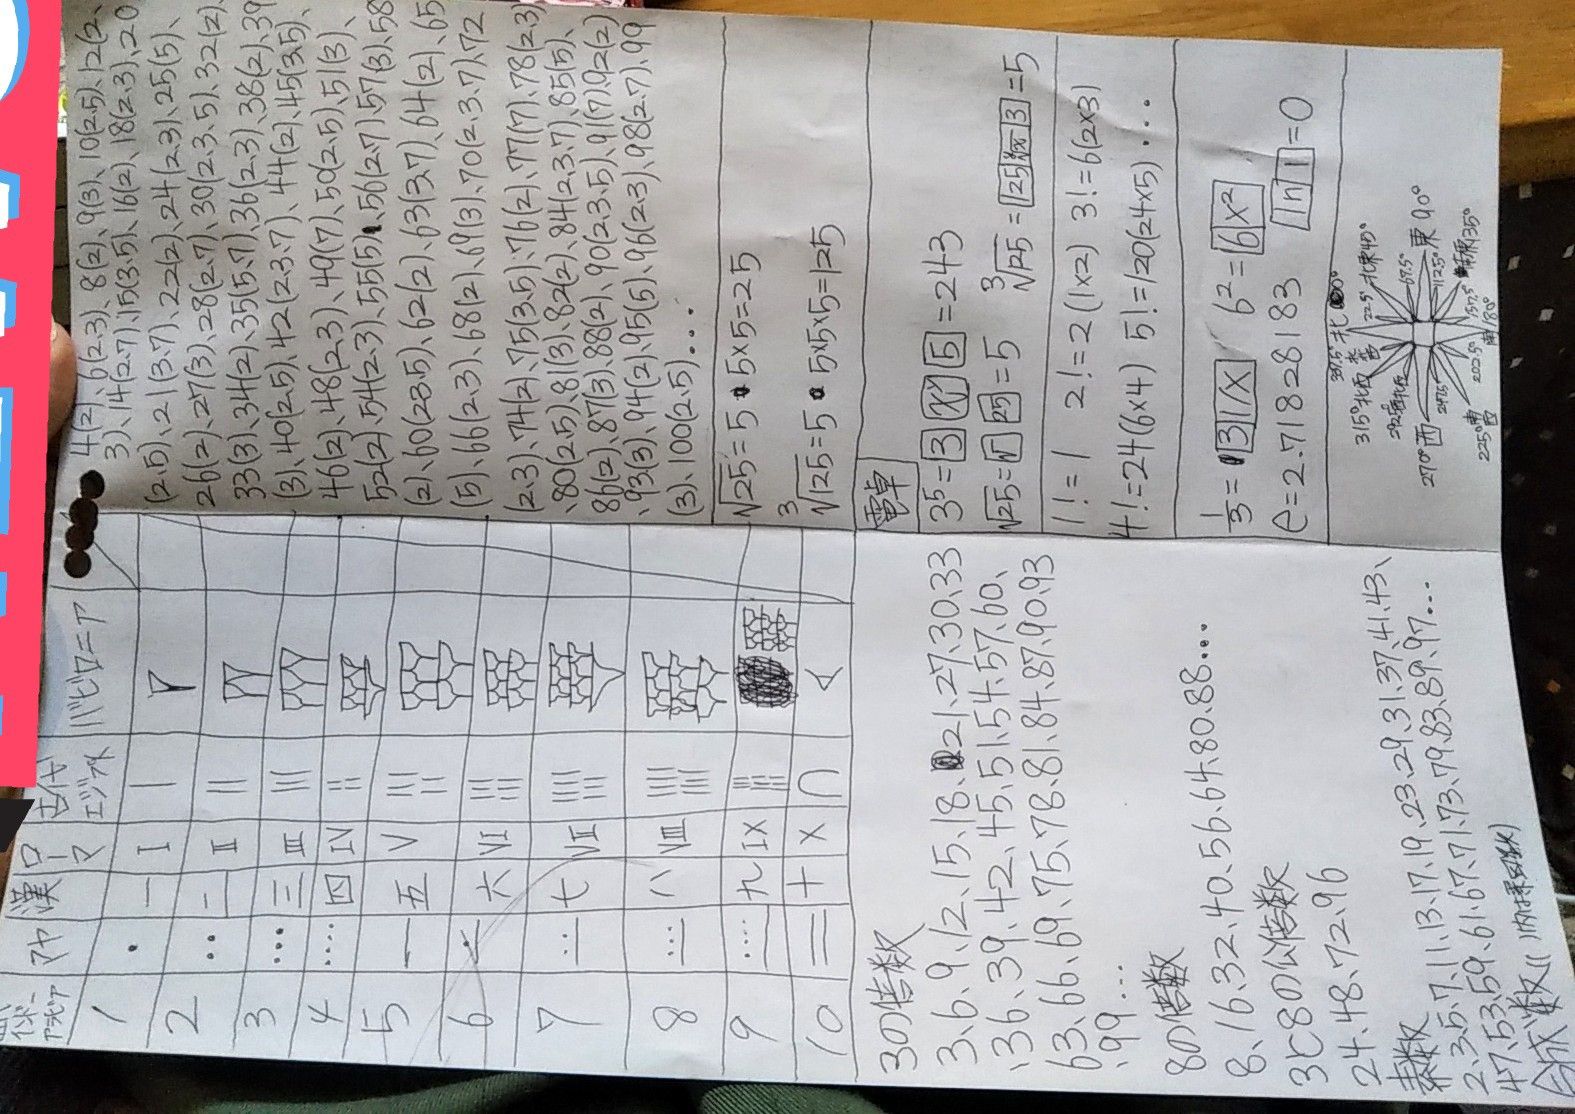 インドーアラビア マヤ 漢 ローマ 古代エジプト バビロニア
1 ・ 一 I |
2 ・・ 二 II ||
3 ・・・ 三 III |||
4 ・・・・ 四 IV
5 — 五 V
6 六 VI
7 七 VII
8 八 VIII
9 九 IX
10 十 X ∩ <
3の倍数
3、6、9、12、15、18、21、27、30、33
、36、39、42、45、51、54、57、60、
63、66、69、75、78、81、84、87、90、93
、99…
8の倍数
8、16、32、40、56、64、80、88…
3と8の公倍数
24、48、72、96
素数
2、3、5、7、11、13、17、19、23、29、31、37、41、43、
47、53、59、61、67、71、73、79、83、89、97…
合成数
4(2)、6(2、3)、8(2)、9(3)、10(2、5)、12(2、
3)、14(2、7)、15(3、5)、16(2)、18(2、3)、20
(2、5)、21(3、7)、22(2)、24(2、3)、25(5)、
26(2)、27(3)、28(2、7)、30(2、3、5)、32(2)、
33(3)、34(2)、35(5、7)、36(2、3)、38(2)、39
(3)、40(2、5)、42(2、3、7)、44(2)、45(3、5)、
46(2)、48(2、3)、49(7)、50(2、5)、51(3)、
52(2)、54(2、3)、55(5)、56(2、7)、57(3)、58
(2)、60(2、3、5)、62(2)、63(3、7)、64(2)、65
(5)、66(2、3)、68(2)、69(3)、70(2、3、7)、72
(2、3)、74(2)、75(3、5)、76(2)、77(7)、78(2、3)
、80(2、5)、81(3)、82(2)、84(2、3、7)、85(5)、
86(2)、87(3)、88(2)、90(2、3、5)、91(7)、92(2)
、93(3)、94(2)、95(5)、96(2、3)、98(2、7)、99
(3)、100(2、5)…
√25=5 5×5=25
³√125=5 5×5×5=125
電卓
3⁵=3 xʸ 5=243
√25=√ 25=5 ³√125=125 ˣ√y 3=5
1!=1 2!=2(1×2) 3!=6(2×3)
4!=24(6×4) 5!=120(24×5)…
1/3=3 1/x 6²=6 x²
e=2.71828183 ln 1=0
337.5° 北 0°
315°北西 22.5° 北東45°
67.5°
270°西 東90°
247.5° 112.5°
225°南西 202.5° 157.5° 南東135°
南180°